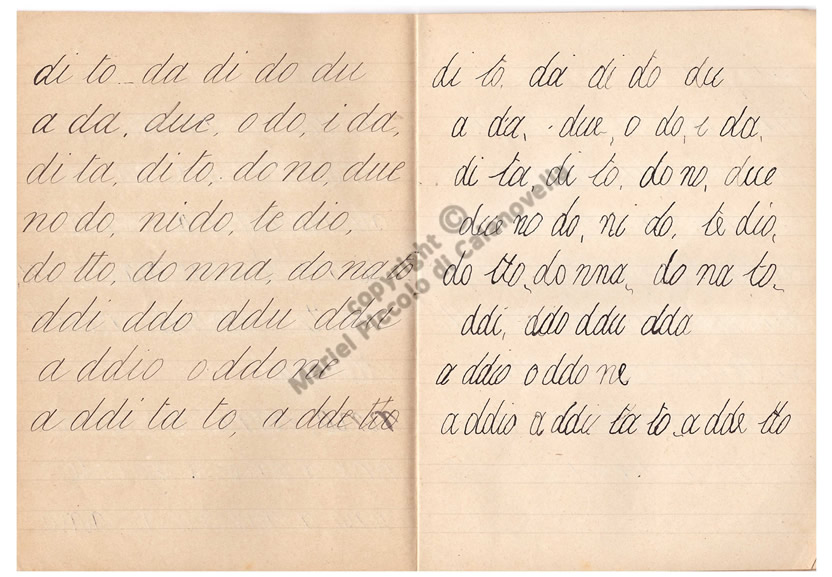 di to da di do du
a da, due, o do, i da,
di ta, di to, do no, due
no do, ni do, te dio,
do tto, do nna, do na to
ddi ddo ddu dda
a ddio o ddo ne
a ddi ta to, a dde tto
di to, da di do du
a da, due, o do, i da,
di ta, di to, do no, due
due no do, ni do, te dio,
do tto, do nna, do na to,
ddi, ddo ddu dda
a ddio o ddo ne
a ddio a ddi ta to, a dde tto
copyright ©
Mariel Piccolo di Catanovella